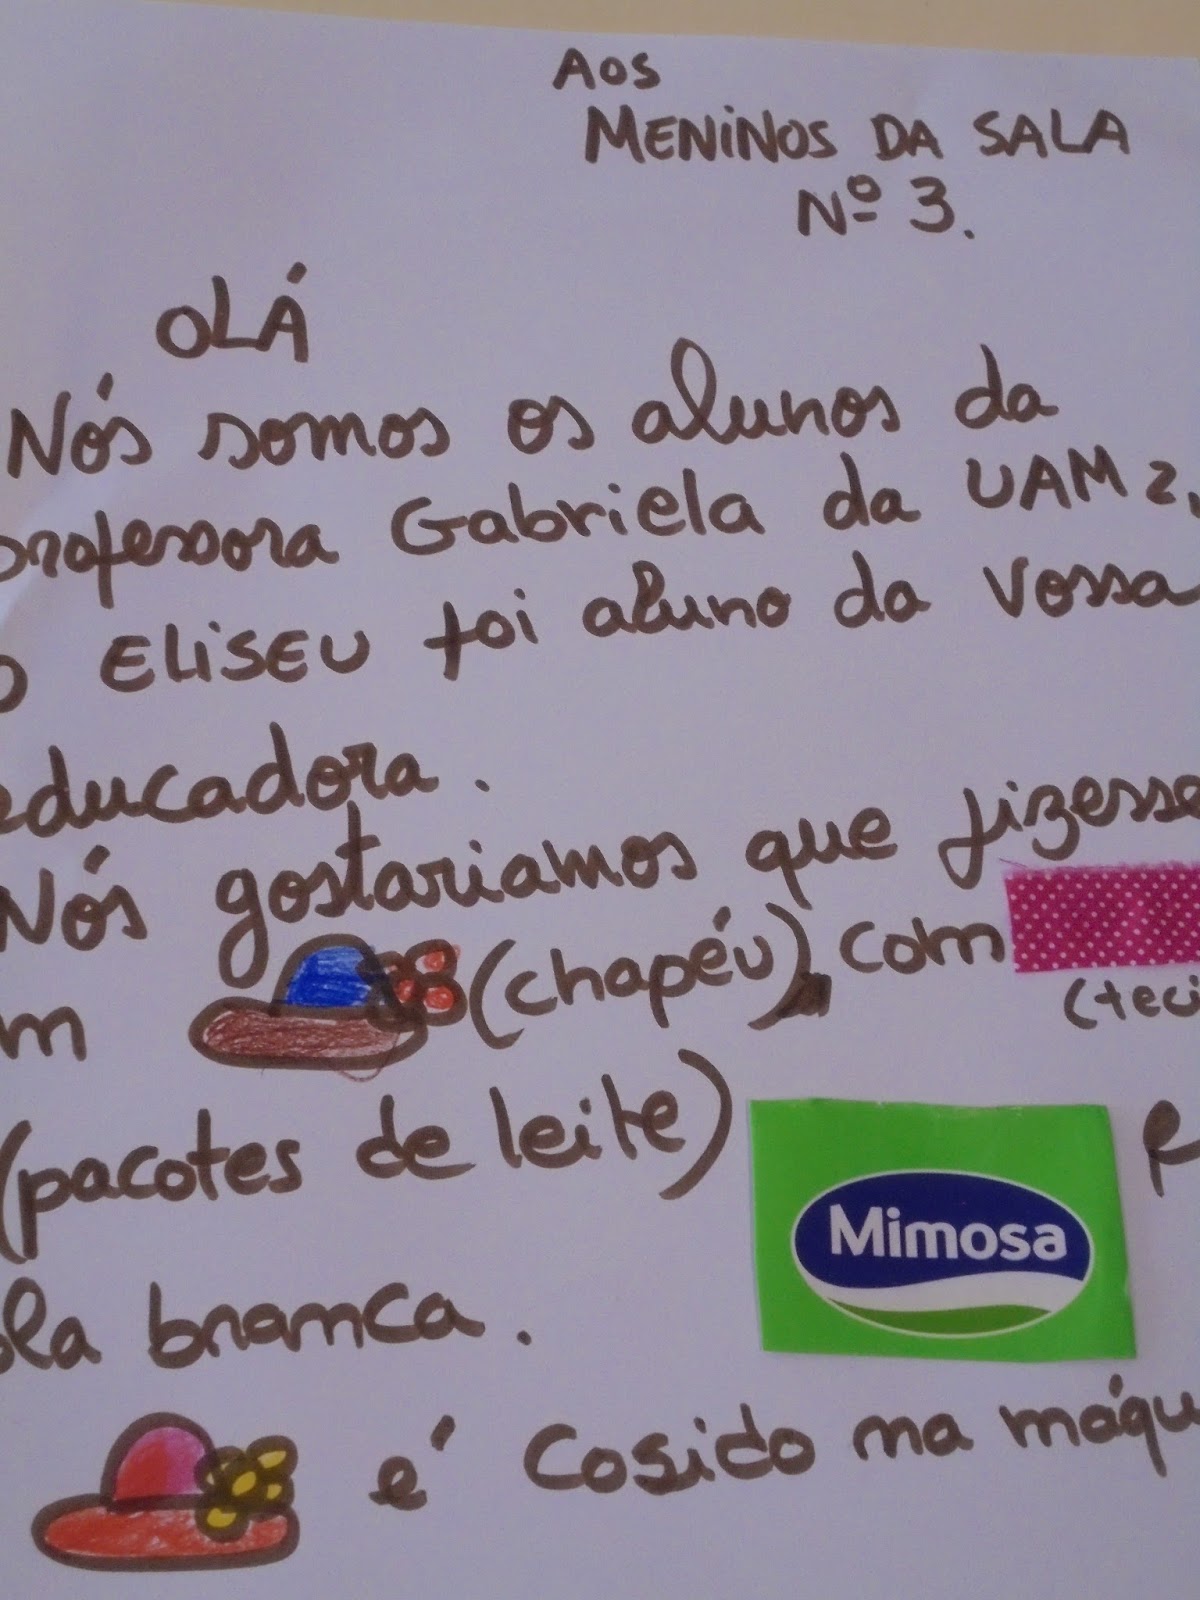 AOS
MENINOS DA SALA
Nº 3.
OLÁ
Nós somos os alunos da
professora Gabriela da UAM 2.
O ELISEU foi aluno da Vossa
educadora.
Nós gostariamos que fizesse
m (chapéu), com
(teci
(pacotes de leite)
Mimosa
e
la branca.
é cosido na máqu